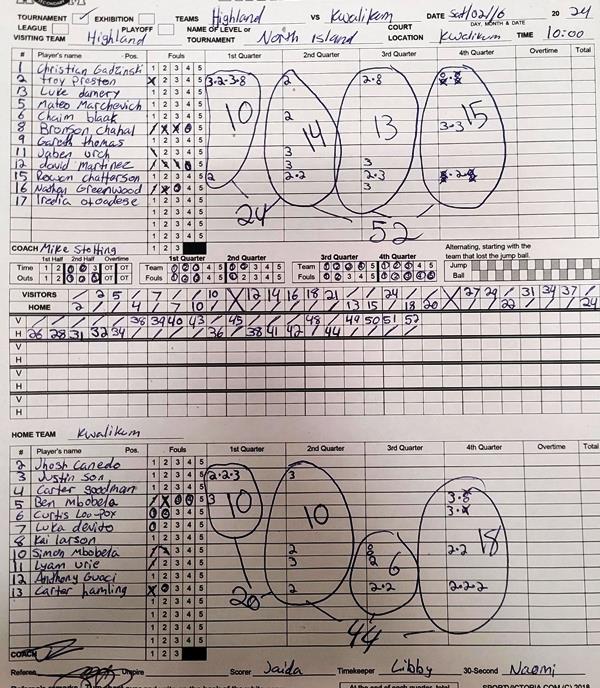 TOURNAMENT ✓ EXHIBITION TEAMS Highland VS Kwalikum DATE Sat/02/16 20 24
DAY, MONTH & DATE
LEAGUE PLAYOFF NAME OF LEVEL or COURT
VISITING TEAM Highland TOURNAMENT North Island LOCATION Kwalikum TIME 10:00
# Player's name Pos. Fouls 1st Quarter 2nd Quarter 3rd Quarter 4th Quarter Overtime Total
1 Christian Gadzinski 1 2 3 4 5
2 Troy Preston 1 2 3 4 5 3·2·3·8 2 2·8
13 Luke damery 1 2 3 4 5
5 Mateo Marchevich 1 2 3 4 5
6 Chaim blaak 1 2 3 4 5 2
8 Bronson chahal 3·3
9 Gareth thomas 1 2 3 4 5
11 Jaben urch 3
12 david martinez 3 3
15 Rowan chatterson 1 2 3 4 5 2 2·2 2·3
16 Nathan Greenwood 3
17 1 2 3 4 5
10 14 13 15
24 52
COACH Mike Stotting 1 2 3
1st Half 2nd Half Overtime 1st Quarter 2nd Quarter 3rd Quarter 4th Quarter
Alternating, starting with the team that lost the jump ball.
Time Team Team Jump
Outs Fouls Fouls Ball
VISITORS / 2 5 / 7 / / 10 X 12 14 16 18 21 / / 24 / / X 27 29 / 31 34 37 /
HOME 2 / / 4 / 7 / 10 / / / / 13 15 / 18 20 X / / 22 / / / 24
V / / / / / 38 39 40 43 / 45 / / / 48 / 49 50 51 52
H 26 28 31 32 34 / / / / 36 / 38 41 42 / 44 / / / /
V
H
V
H
V
H
HOME TEAM Kwalikum
# Player's name Pos. Fouls 1st Quarter 2nd Quarter 3rd Quarter 4th Quarter Overtime Total
2 Jhosh Canedo 1 2 3 4 5
3 Justin son 1 2 3 4 5 2·2·3 3
4 Carter goodman 1 2 3 4 5
5 Ben Mbobela 3
6 Curtis Loo-Pox
7 Luka devito
8 Kai larson 1 2 3 4 5
10 Simon Mbobela 2 2·2
11 Lyam urie 3 2
12 Anthony Guaci 1 2 3 4 5
13 Carter hamling 2 2·2 2·2·2
10 10 6 18
20 44
COACH 1 2 3
Referee Umpire Scorer Jaida Timekeeper Libby 30-Second Naomi